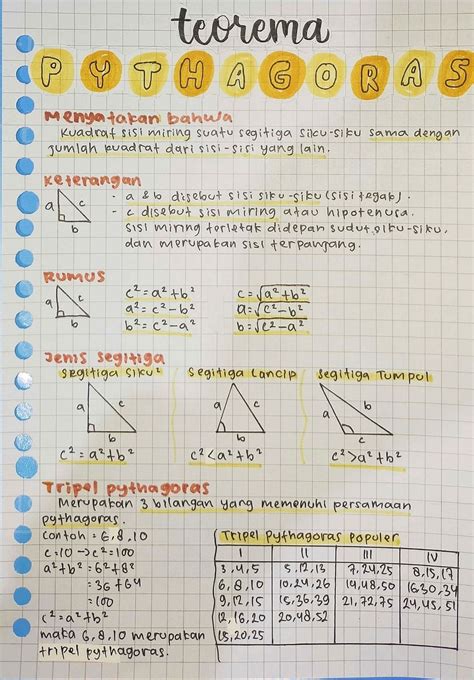 teorema
PYTHAGORAS
Menyatakan bahwa
kuadrat sisi miring suatu segitiga siku-siku sama dengan
jumlah kuadrat dari sisi-sisi yang lain.
Keterangan
a c b
- a & b disebut sisi siku-siku (sisi tegak).
- c disebut sisi miring atau hipotenusa.
sisi miring terletak didepan sudut siku-siku,
dan merupakan sisi terpanjang.
Rumus
a c b
c² = a² + b² c = √a² + b²
a² = c² - b² a = √c² - b²
b² = c² - a² b = √c² - a²
Jenis segitiga
segitiga siku² segitiga Lancip segitiga Tumpul
a c b a c b a b c
c² = a² + b² c² < a² + b² c² > a² + b²
Tripel pythagoras
Merupakan 3 bilangan yang memenuhi persamaan
pythagoras.
contoh = 6, 8, 10
c = 10 → c² = 100
a² + b² = 6² + 8²
= 36 + 64
= 100
c² = a² + b²
maka 6, 8, 10 merupakan
tripel pythagoras.
Tripel Pythagoras Populer
I II III IV
3, 4, 5 5, 12, 13 7, 24, 25 8, 15, 17
6, 8, 10 10, 24, 26 14, 48, 50 16, 30, 34
9, 12, 15 15, 36, 39 21, 72, 75 24, 45, 51
12, 16, 20 20, 48, 52
15, 20, 25